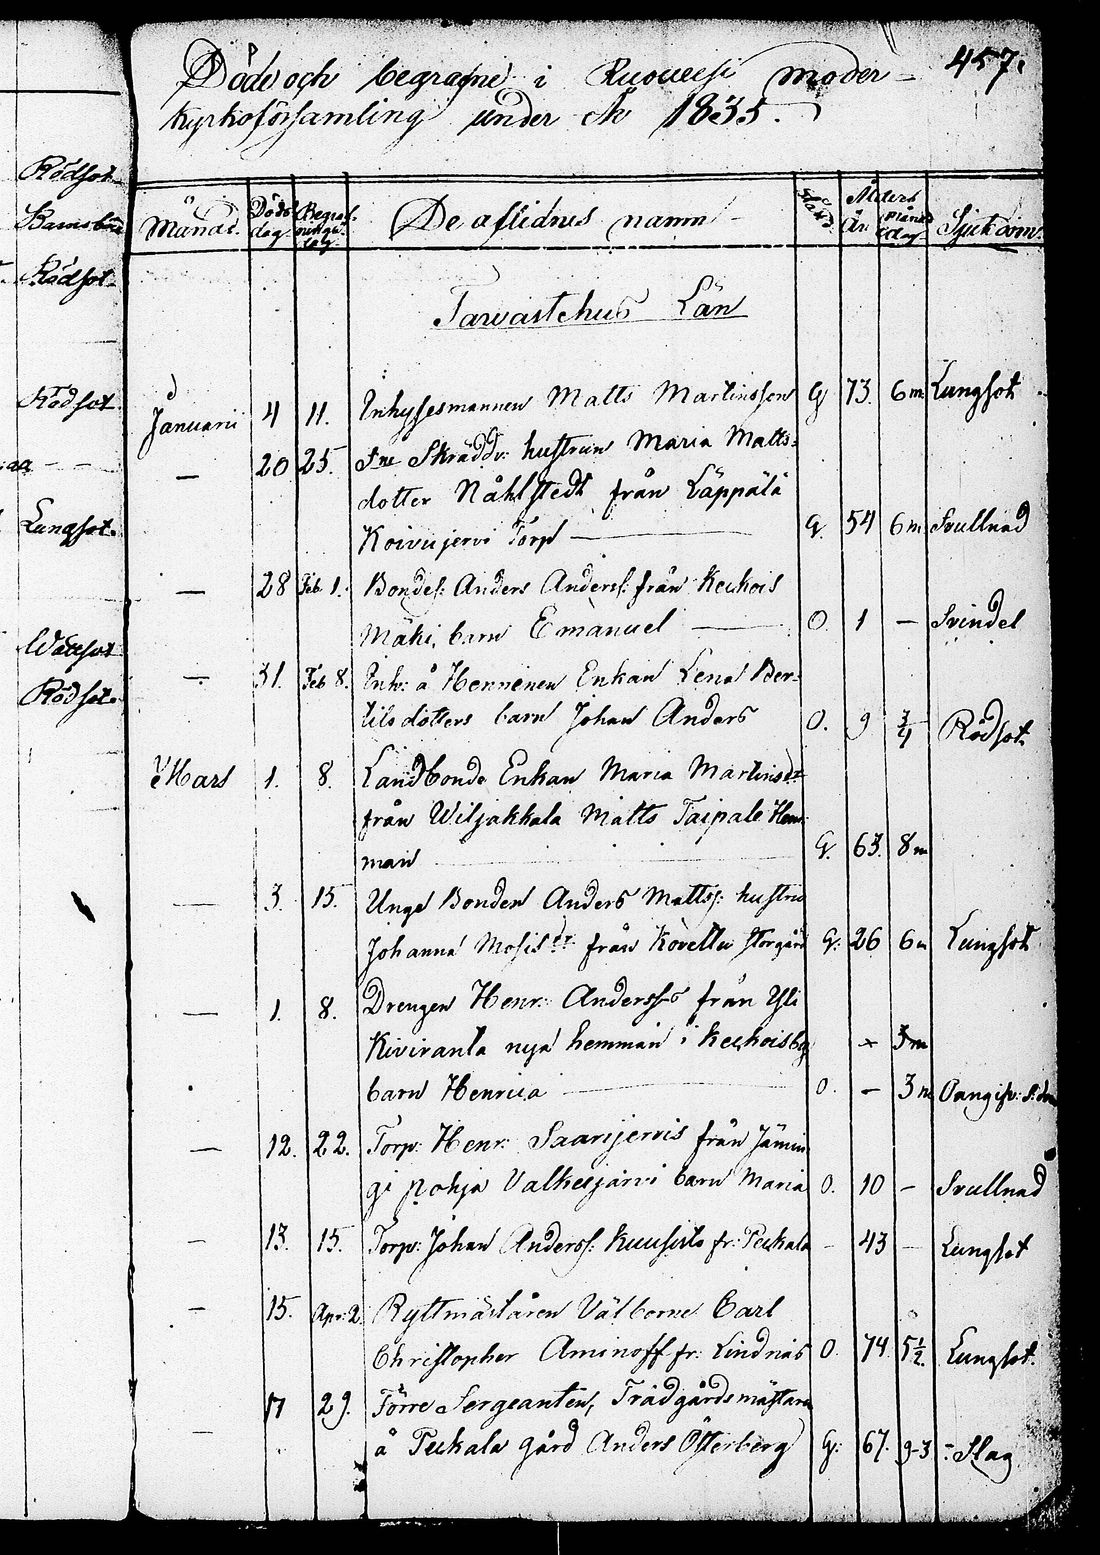 457.
Döde och begrafne i Ruovesi moder-
kyrkoförsamling under År 1835.
Månad. Döds dag Begraf- nings dag De aflidnes namn Stånd Ålders År Mån: dag Sjukdom.
Tavastehus Län
Januarii 4 11. Inhysesmannen Matts Martinsson G 73. 6 m Lungsot
— 20 25. Fne Skrädd: hustrun Maria Matts-
dotter Nåhlstedt från Läppälä
Koivujervi Torp — G. 54 6 m Svullnad
— 28 Feb 1. Bondes: Anders Anderss: från Keckois
Mäki, barn Emanuel — O. 1 — Svindel
— 31. Feb 8. Inh: å Hennenen Enkan Lena Ber-
tilsdotters barn Johan Anders O. 9 3/4 Rödsot
Mars 1. 8. Landbonde Enkan Maria Martinsdr
från Wiljakkala Matts Taipale Hem-
man G. 63. 8 m
— 3. 15. Unge Bonden Anders Mattss: hustru
Johanna Mosisdr från Kovettu Storgård G: 26 6 m Lungsot
— 1. 8. Drengen Henr: Anderss-s från Yli
Kiviranta nya hemman i Keckois by x 3 m
barn Henrica — O. — 3 m
— 12. 22. Torp: Henr: Saarijervis från Jämin-
gi pohja Valkeajärvi barn Maria O. 10 — Svullnad
— 13. 15. Torp: Johan Anderss: Kuusisto fr: Pekkala — 43 — Lungsot
— 15. Apr: 2. Ryttmästaren Välborne Carl
Christopher Aminoff fr: Lindnäs O. 74. 5 1/2. Lungsot.
— 17 29. Förre Sergeanten, Trädgårdsmästare
å Pekkala gård Anders Österberg G: 67. 9-3 Slag
Rödsot
Rödsot.
Rödsot
Lungsot.
Rödsot.